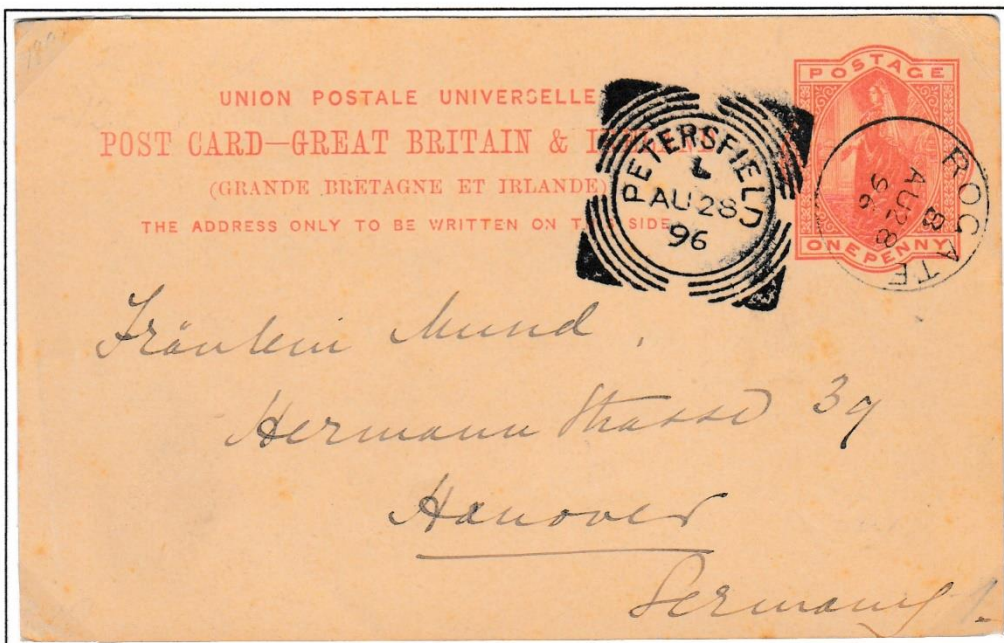 POSTAGE
UNION POSTALE UNIVERSELLE
POST CARD—GREAT BRITAIN & I
(GRANDE BRETAGNE ET IRLANDE)
THE ADDRESS ONLY TO BE WRITTEN ON T SIDE
ONE PENNY
PETERSFIELD
AU 28
96
ROGATE
B
AU 28
96
Fräulein Mund,
Hermann Strasse 39
Hanover
Germany